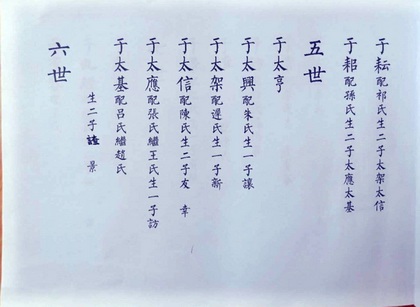 于耘配祁氏生二子太架太信
于耜配孫氏生二子太應太基
五世
于太亨
于太興配朱氏生一子讓
于太架配遲氏生一子新
于太信配陳氏生二子友 章
于太應配張氏繼王氏生一子訪
于太基配呂氏繼趙氏
生二子 景
六世